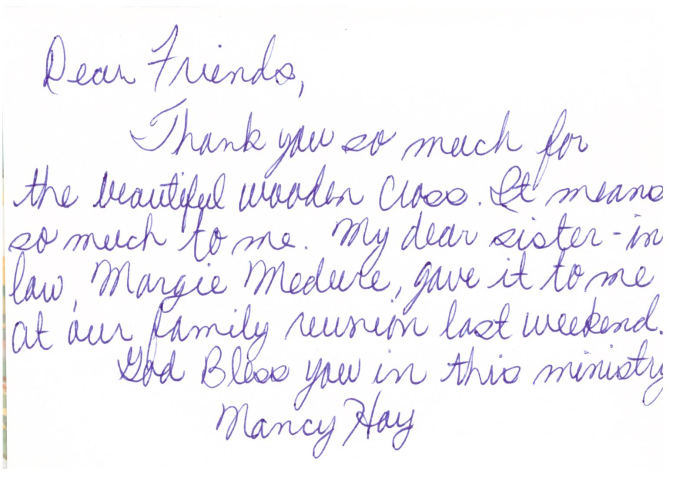 Dear Friends,
Thank you so much for
the beautiful wooden cross. It means
so much to me. My dear sister-in
law, Margie Medure, gave it to me
at our family reunion last weekend.
God Bless you in this ministry
Nancy Hay